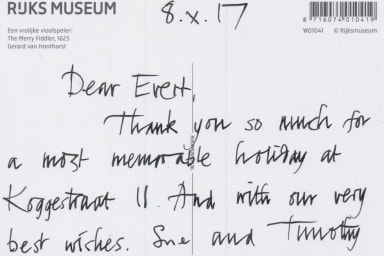 RIJKS MUSEUM
Een vrolijke vioolspeler:
The Merry Fiddler, 1623
Gerard van Honthorst
8.x.17
8 716074 010419
W01041 © Rijksmuseum
Dear Evert,
Thank you so much for
a most memorable holiday at
Koggestraat 11. And with our very
best wishes. Sue and Timothy